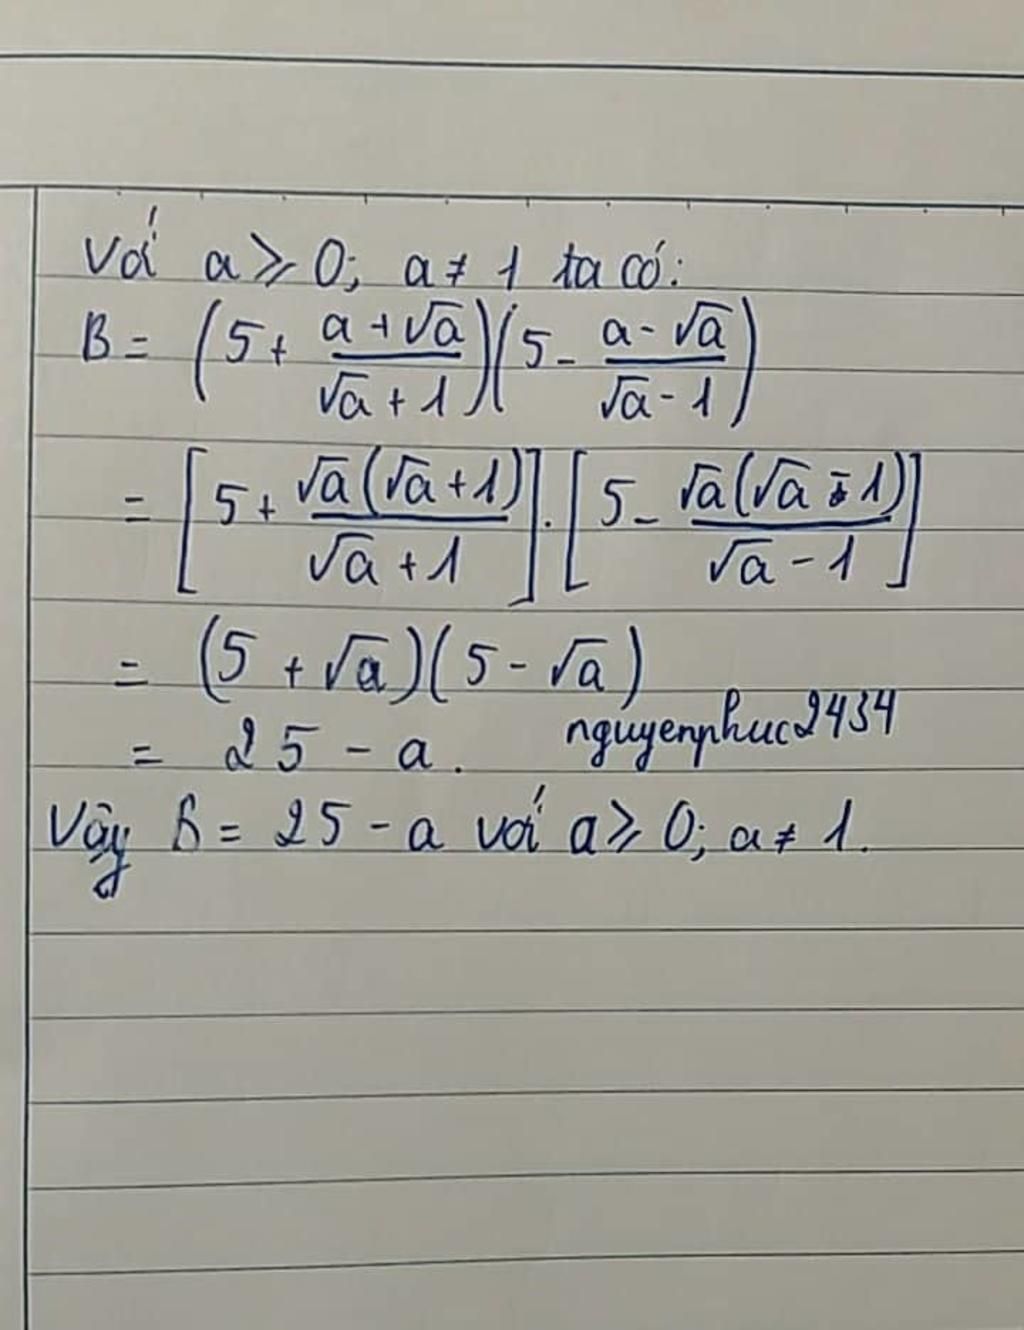 Với a ≥ 0; a ≠ 1 ta có:
B = (5 + (a + √a)/(√a + 1))(5 - (a - √a)/(√a - 1))
= [5 + √a(√a + 1)/(√a + 1)].[5 - √a(√a - 1)/(√a - 1)]
= (5 + √a)(5 - √a)
= 25 - a. nguyenphuc2434
Vậy B = 25 - a với a ≥ 0; a ≠ 1.